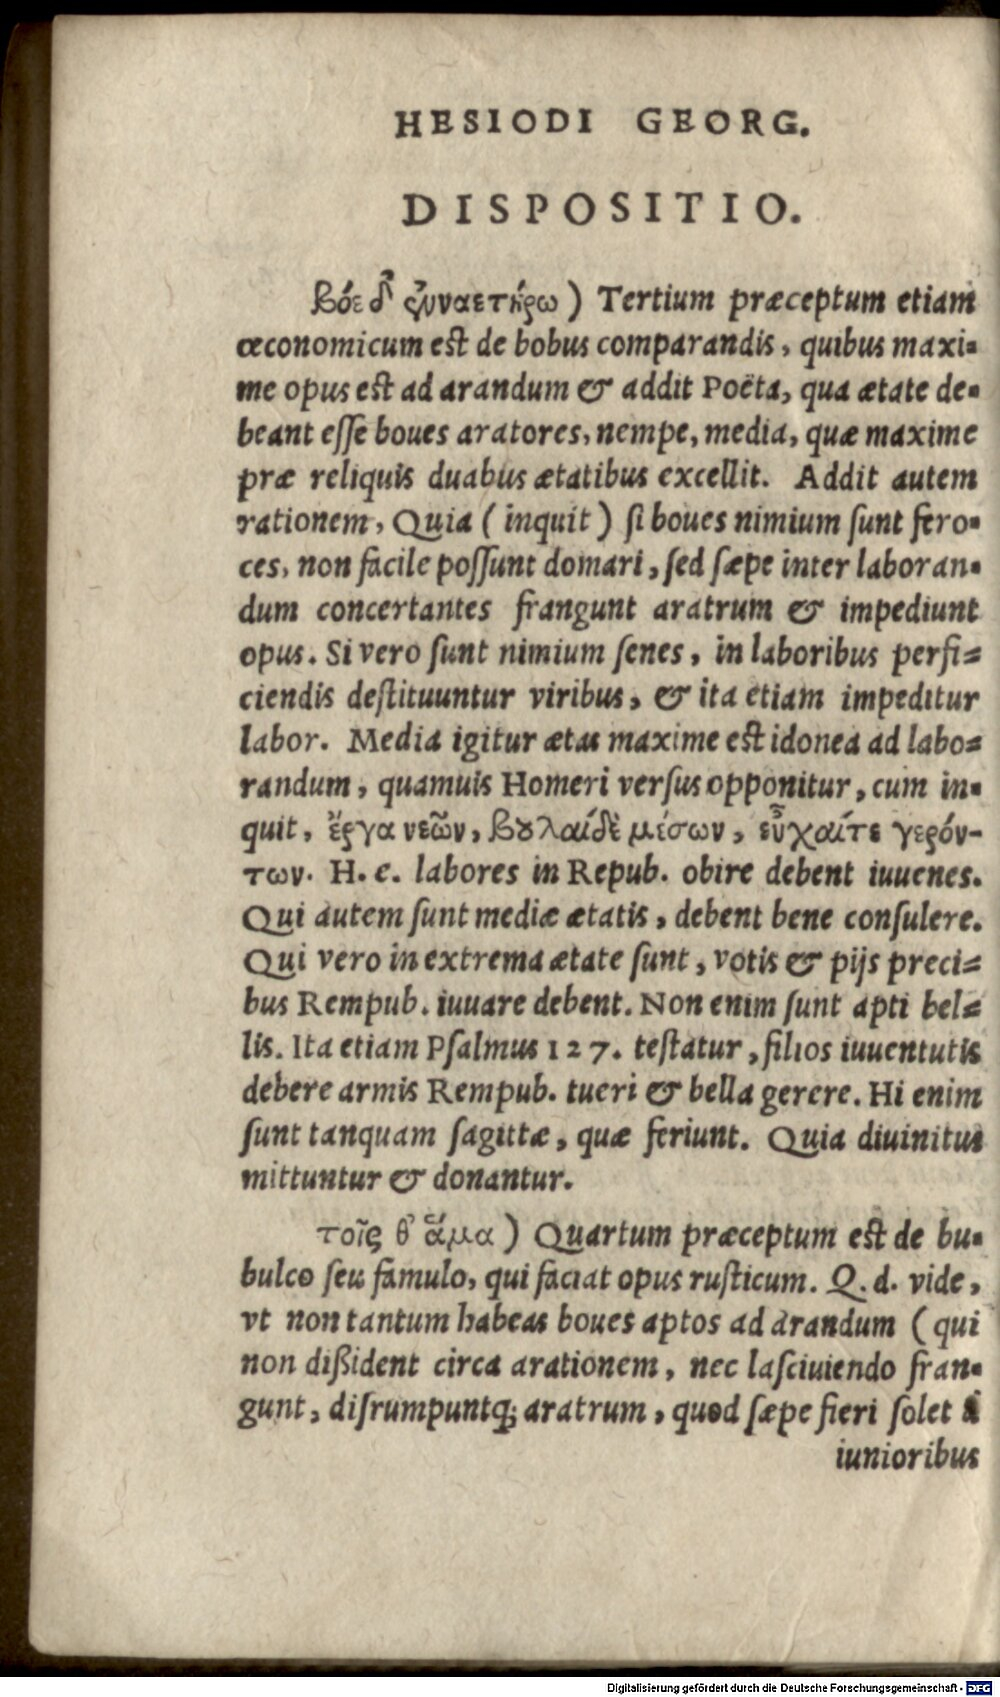 HESIODI GEORG.
DISPOSITIO.
βόε δ' ἐνναετήρω) Tertium præceptum etiam
œconomicum est de bobus comparandis, quibus maxi-
me opus est ad arandum & addit Poëta, qua ætate de-
beant esse boues aratores, nempe, media, quæ maxime
præ reliquis duabus ætatibus excellit. Addit autem
rationem, Quia (inquit) si boues nimium sunt fero-
ces, non facile possunt domari, sed sæpe inter laboran-
dum concertantes frangunt aratrum & impediunt
opus. Si vero sunt nimium senes, in laboribus perfi-
ciendis destituuntur viribus, & ita etiam impeditur
labor. Media igitur ætas maxime est idonea ad labo-
randum, quamuis Homeri versus opponitur, cum in-
quit, ἔργα νεῶν, βουλαίδὲ μέσων, εὖχαίτε γερόν-
των. H. e. labores in Repub. obire debent iuuenes.
Qui autem sunt mediæ ætatis, debent bene consulere.
Qui vero in extrema ætate sunt, votis & pijs preci-
bus Rempub. iuuare debent. Non enim sunt apti bel-
lis. Ita etiam Psalmus 127. testatur, filios iuuentutis
debere armis Rempub. tueri & bella gerere. Hi enim
sunt tanquam sagittæ, quæ feriunt. Quia diuinitus
mittuntur & donantur.
τοῖς θ' ἅμα) Quartum præceptum est de bu-
bulco seu famulo, qui faciat opus rusticum. Q. d. vide,
vt non tantum habeas boues aptos ad arandum (qui
non dißident circa arationem, nec lasciuiendo fran-
gunt, disrumpuntq; aratrum, quod sæpe fieri solet à
iunioribus
Digitalisierung gefördert durch die Deutsche Forschungsgemeinschaft - DFG